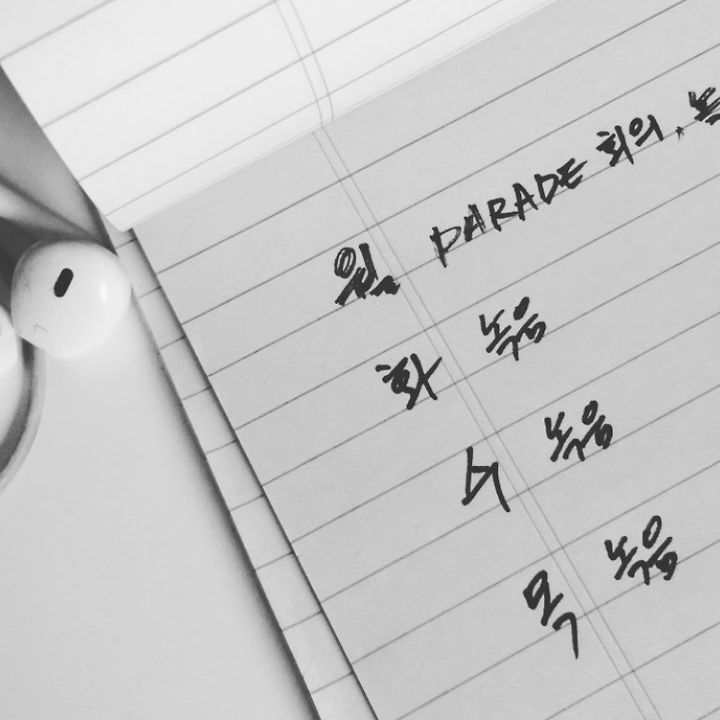 월 PARADE 회의, 녹
화 녹음
수 녹음
목 녹음